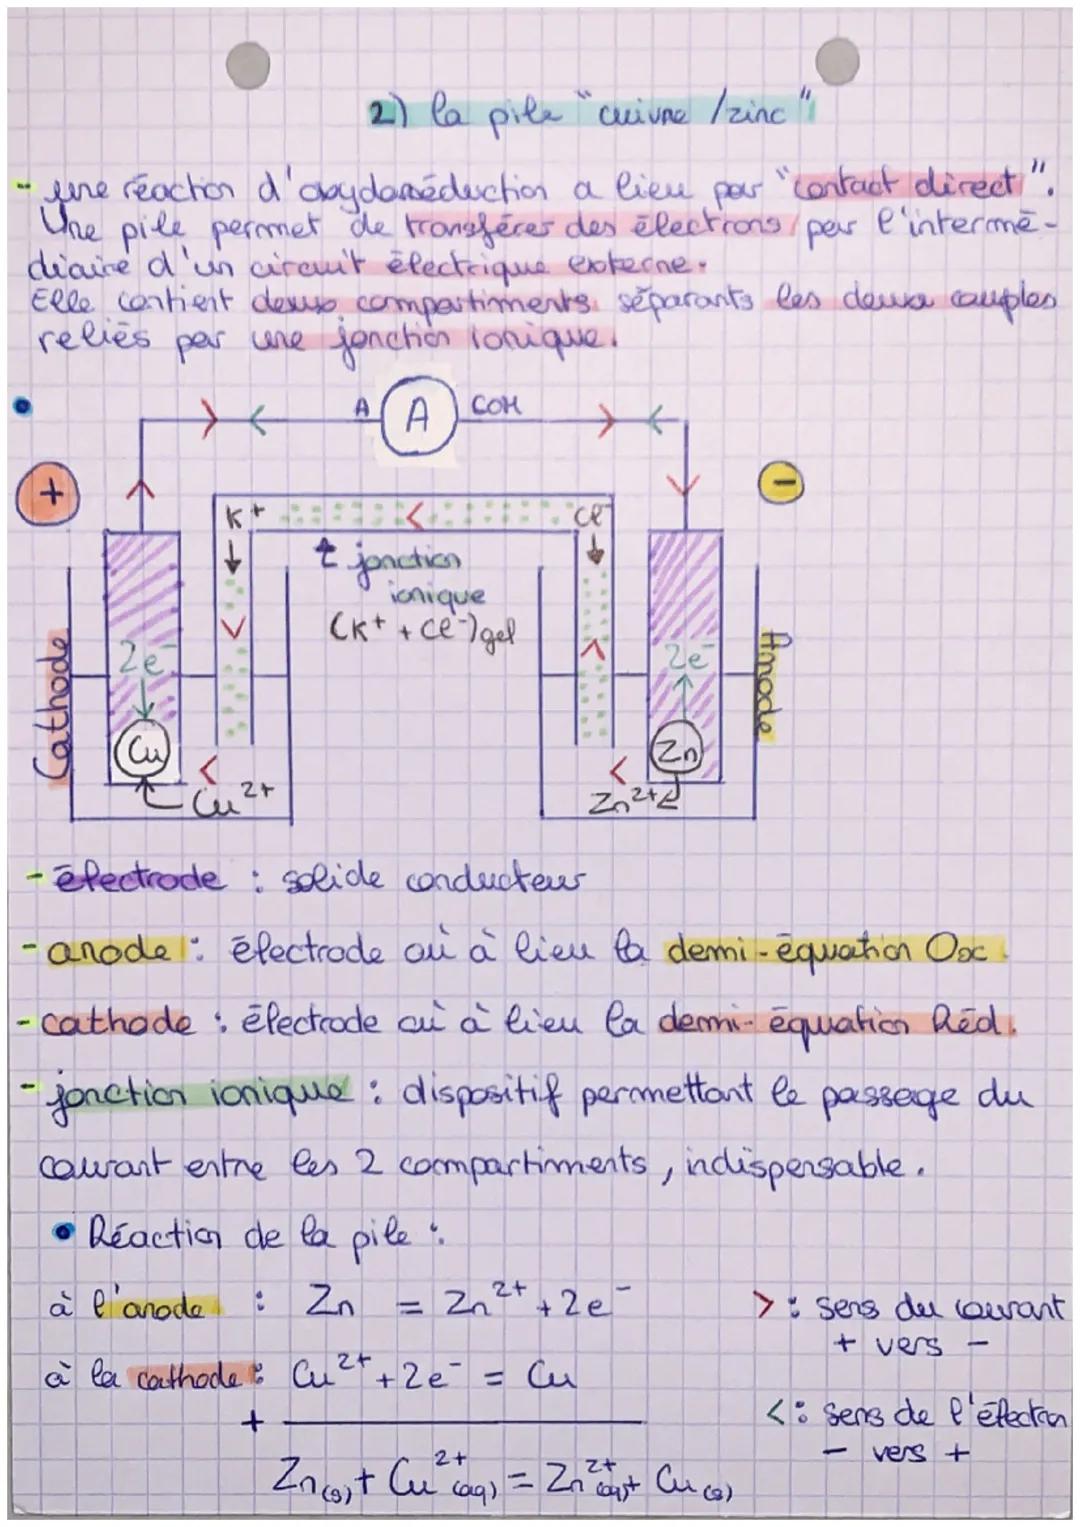 2) la pile "cuivre /zinc"
- une réaction d'oxydoréduction a lieu par "contact direct".
Une pile permet de transférer des électrons par l'intermé-
diaire d'un circuit électrique externe.
Elle contient deux compartiments séparants les deux couples
reliés par une jonction ionique.
A
A
COM
+
-
K+
Cl-
jonction
ionique
(K+ + Cl-)gel
Cathode
2e-
2e-
Anode
Cu
Zn
Cu2+
Zn2+
- électrode : solide conducteur
- anode : électrode où à lieu la demi-équation Ox.
- cathode : électrode où à lieu la demi-équation Réd.
- jonction ionique : dispositif permettant le passage du
courant entre les 2 compartiments, indispensable.
• Réaction de la pile :
à l'anode : Zn = Zn2+ + 2e-
à la cathode : Cu2+ + 2e- = Cu
+
Zn(s) + Cu2+(aq) = Zn2+(aq) + Cu(s)
> : sens du courant
+ vers -
< : sens de l'électron
- vers +